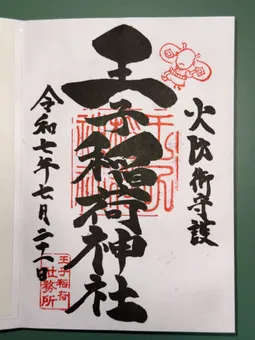 火防御守護
王子稲荷神社
令和七年七月二十一日
王子稲荷
社務所